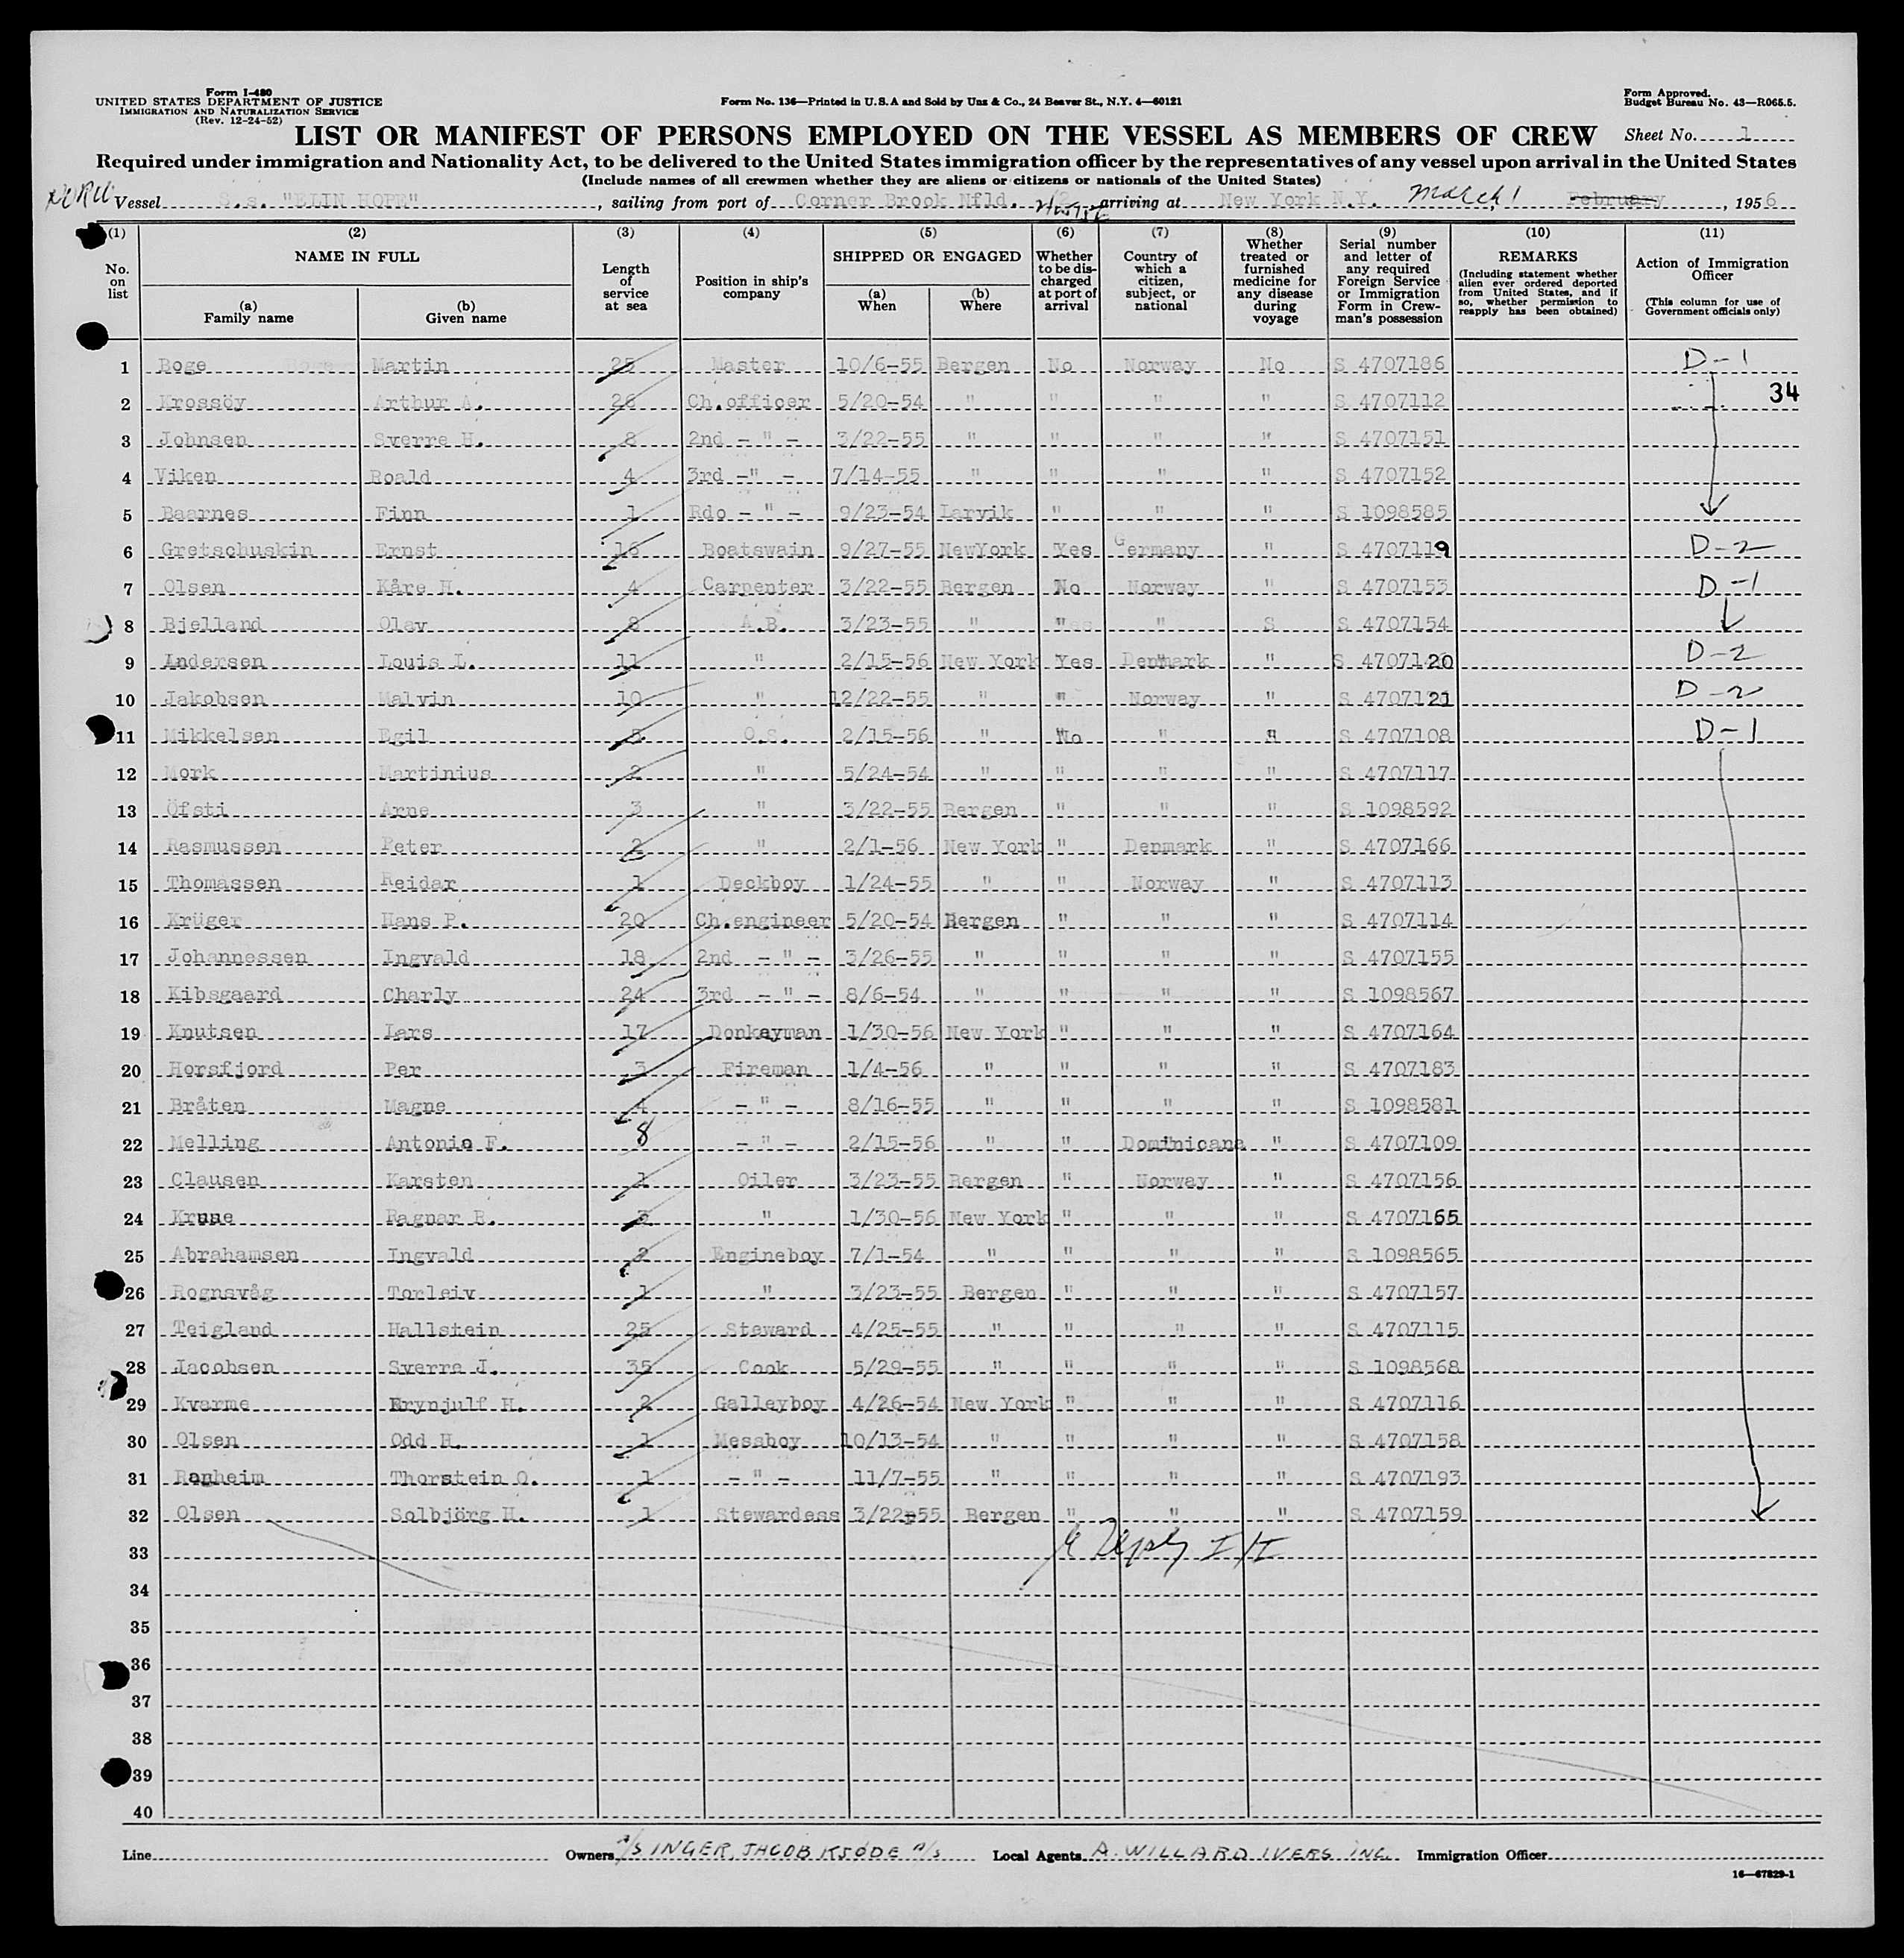 Form I-480
UNITED STATES DEPARTMENT OF JUSTICE
IMMIGRATION AND NATURALIZATION SERVICE
(Rev. 12-24-52)
Form No. 136—Printed in U.S.A and Sold by Unz & Co., 24 Beaver St., N.Y. 4—60121
Form Approved.
Budget Bureau No. 43—R065.5.
LIST OR MANIFEST OF PERSONS EMPLOYED ON THE VESSEL AS MEMBERS OF CREW
Sheet No. 1
Required under immigration and Nationality Act, to be delivered to the United States immigration officer by the representatives of any vessel upon arrival in the United States
(Include names of all crewmen whether they are aliens or citizens or nationals of the United States)
Vessel S.s. "ELIN HOPE", sailing from port of Corner Brook Nfld. arriving at New York N.Y. March 1 February, 1956
(1) No. on list
(2) NAME IN FULL (a) Family name (b) Given name
(3) Length of service at sea
(4) Position in ship's company
(5) SHIPPED OR ENGAGED (a) When (b) Where
(6) Whether to be discharged at port of arrival
(7) Country of which a citizen, subject, or national
(8) Whether treated or furnished medicine for any disease during voyage
(9) Serial number and letter of any required Foreign Service or Immigration Form in Crewman's possession
(10) REMARKS (Including statement whether alien ever ordered deported from United States, and if so, whether permission to reapply has been obtained)
(11) Action of Immigration Officer (This column for use of Government officials only)
1 Boge Martin 25 Master 10/6-55 Bergen No Norway No S 4707186 D-1
34
2 Krossöy Arthur A. 26 Ch.officer 5/20-54 " " " " S 4707112
3 Johnsen Sverre H. 8 2nd - " - 3/22-55 " " " " S 4707151
4 Viken Roald 4 3rd -" - 7/14-55 " " " " S 4707152
5 Baarnes Finn 1 Rdo - " - 9/23-54 Larvik " " " S 1098585
6 Gretschuskin Ernst 16 Boatswain 9/27-55 NewYork Yes Germany " S 4707119 D-2
7 Olsen Kåre H. 4 Carpenter 3/22-55 Bergen No Norway " S 4707153 D-1
8 Bjelland Olav 8 A.B. 3/23-55 " " " S S 4707154
9 Andersen Louis L. 11 " 2/15-56 New York Yes Denmark " S 4707120 D-2
10 Jakobsen Malvin 10 " 12/22-55 " " Norway " S 4707121 D-2
11 Mikkelsen Egil O.S. 2/15-56 " No " " S 4707108 D-1
12 Mork Martinius 2 " 5/24-54 " " " " S 4707117
13 Öfsti Arne 3 " 3/22-55 Bergen " " " S 1098592
14 Rasmussen Peter 2 " 2/1-56 New York " Denmark " S 4707166
15 Thomassen Reidar 1 Deckboy 1/24-55 " " Norway " S 4707113
16 Krüger Hans P. 20 Ch.engineer 5/20-54 Bergen " " " S 4707114
17 Johannessen Ingvald 18 2nd - " - 3/26-55 " " " " S 4707155
18 Kibsgaard Charly 24 3rd - " - 8/6-54 " " " " S 1098567
19 Knutsen Lars 17 Donkeyman 1/30-56 New York " " " S 4707164
20 Horsfjord Per 3 Fireman 1/4-56 " " " " S 4707183
21 Bråten Magne 4 - " - 8/16-55 " " " " S 1098581
22 Melling Antonio F. 8 - " - 2/15-56 " " Dominicana " S 4707109
23 Clausen Karsten 1 Oiler 3/23-55 Bergen " Norway " S 4707156
24 Kruse Ragnar R. " 1/30-56 New York " " " S 4707165
25 Abrahamsen Ingvald 2 Engineboy 7/1-54 " " " " S 1098565
26 Rognsvåg Torleiv 1 " 3/23-55 Bergen " " " S 4707157
27 Teigland Hallstein 25 Steward 4/25-55 " " " " S 4707115
28 Jacobsen Sverre J. 35 Cook 5/29-55 " " " " S 1098568
29 Kvarme Brynjulf H. 2 Galleyboy 4/26-54 New York " " " S 4707116
30 Olsen Odd H. 1 Messboy 10/13-54 " " " " S 4707158
31 Ronheim Thorstein O. 1 - " - 11/7-55 " " " " S 4707193
32 Olsen Solbjörg H. 1 Stewardess 3/22-55 Bergen " " " S 4707159
33
34
35
36
37
38
39
40
Line Owners A/S INGER, JACOB KJØDE A/S Local Agents A. WILLARD IVERS INC. Immigration Officer
16—67829-1